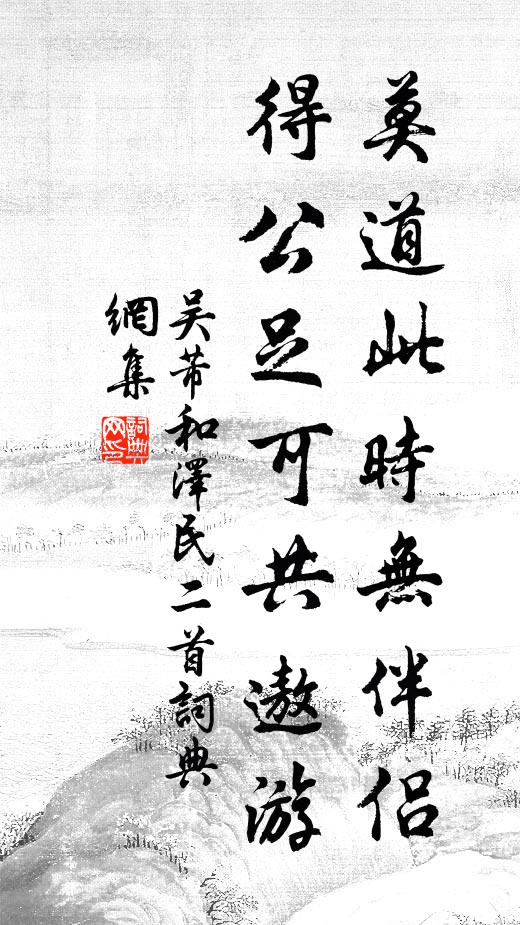 莫道此時無伴侣
得公足可共遨游
吴芾和澤民二首詞典
網集
詞典
网印